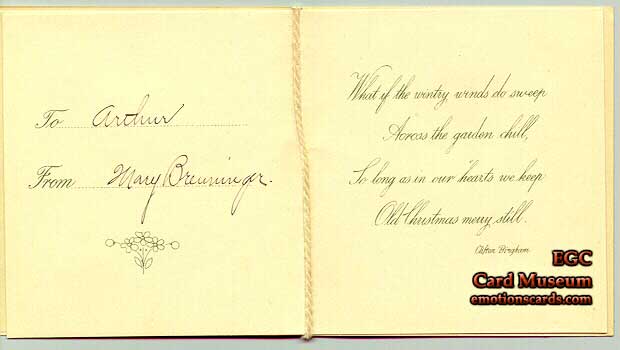 To Arthur
From Mary Breuninger.
What if the wintry winds do sweep
Across the garden chill,
So long as in our hearts we keep
Old Christmas merry, still.
Clifton Bingham
EGC
Card Museum
emotionscards.com